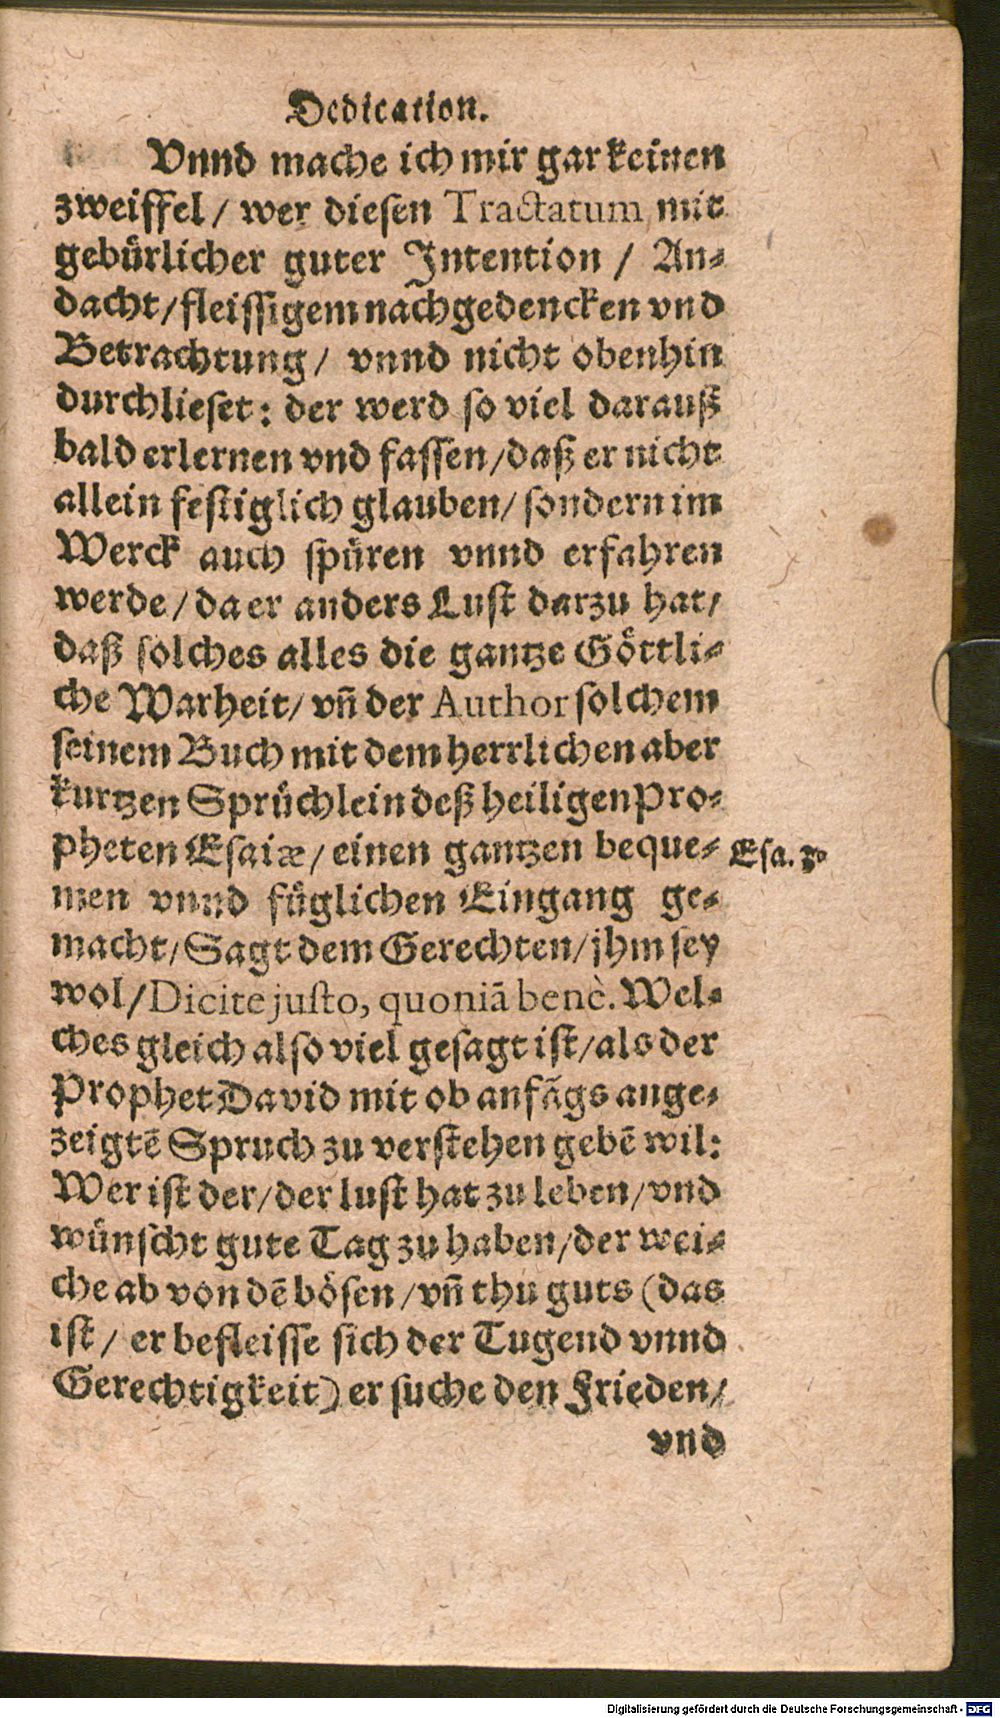 Dedication.
Vnnd mache ich mir gar keinen
zweiffel / wer diesen Tractatum mit
gebürlicher guter Intention / An-
dacht / fleissigem nachgedencken vnd
Betrachtung / vnnd nicht obenhin
durchlieset: der werd so viel darauß
bald erlernen vnd fassen / daß er nicht
allein festiglich glauben / sondern im
Werck auch spüren vnnd erfahren
werde / da er anders Lust darzu hat /
daß solches alles die gantze Göttli-
che Warheit / vñ der Author solchem
seinem Buch mit dem herrlichen aber
kurtzen Sprüchlein deß heiligen Pro-
pheten Esaiæ / einen gantzen beque-
Esa. 3.
men vnnd füglichen Eingang ge-
macht / Sagt dem Gerechten / jhm sey
wol / Dicite justo, quoniā benè. Wel-
ches gleich also viel gesagt ist / als der
Prophet David mit ob anfãgs ange-
zeigtẽ Spruch zu verstehen gebẽ wil:
Wer ist der / der lust hat zu leben / vnd
wünscht gute Tag zu haben / der wei-
che ab von dẽ bösen / vñ thu guts (das
ist / er befleisse sich der Tugend vnnd
Gerechtigkeit) er suche den Frieden /
vnd
Digitalisierung gefördert durch die Deutsche Forschungsgemeinschaft - DFG